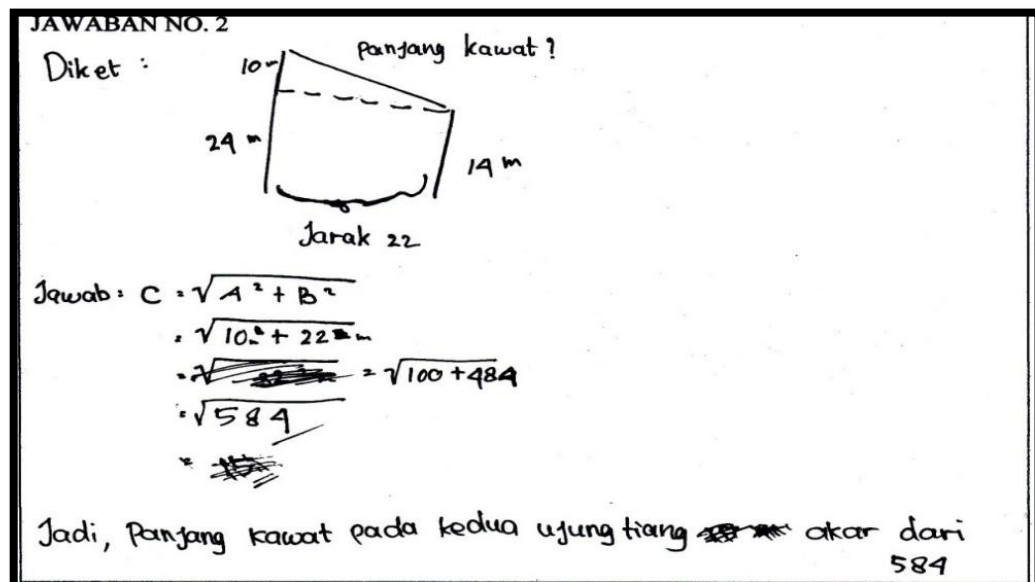 JAWABAN NO. 2
Diket :
Panjang kawat ?
10 m
24 m
14 m
Jarak 22
Jawab : C = √A² + B²
= √10² + 22² m
= √ = √100 + 484
= √584
=
Jadi, Panjang kawat pada kedua ujung tiang akar dari
584